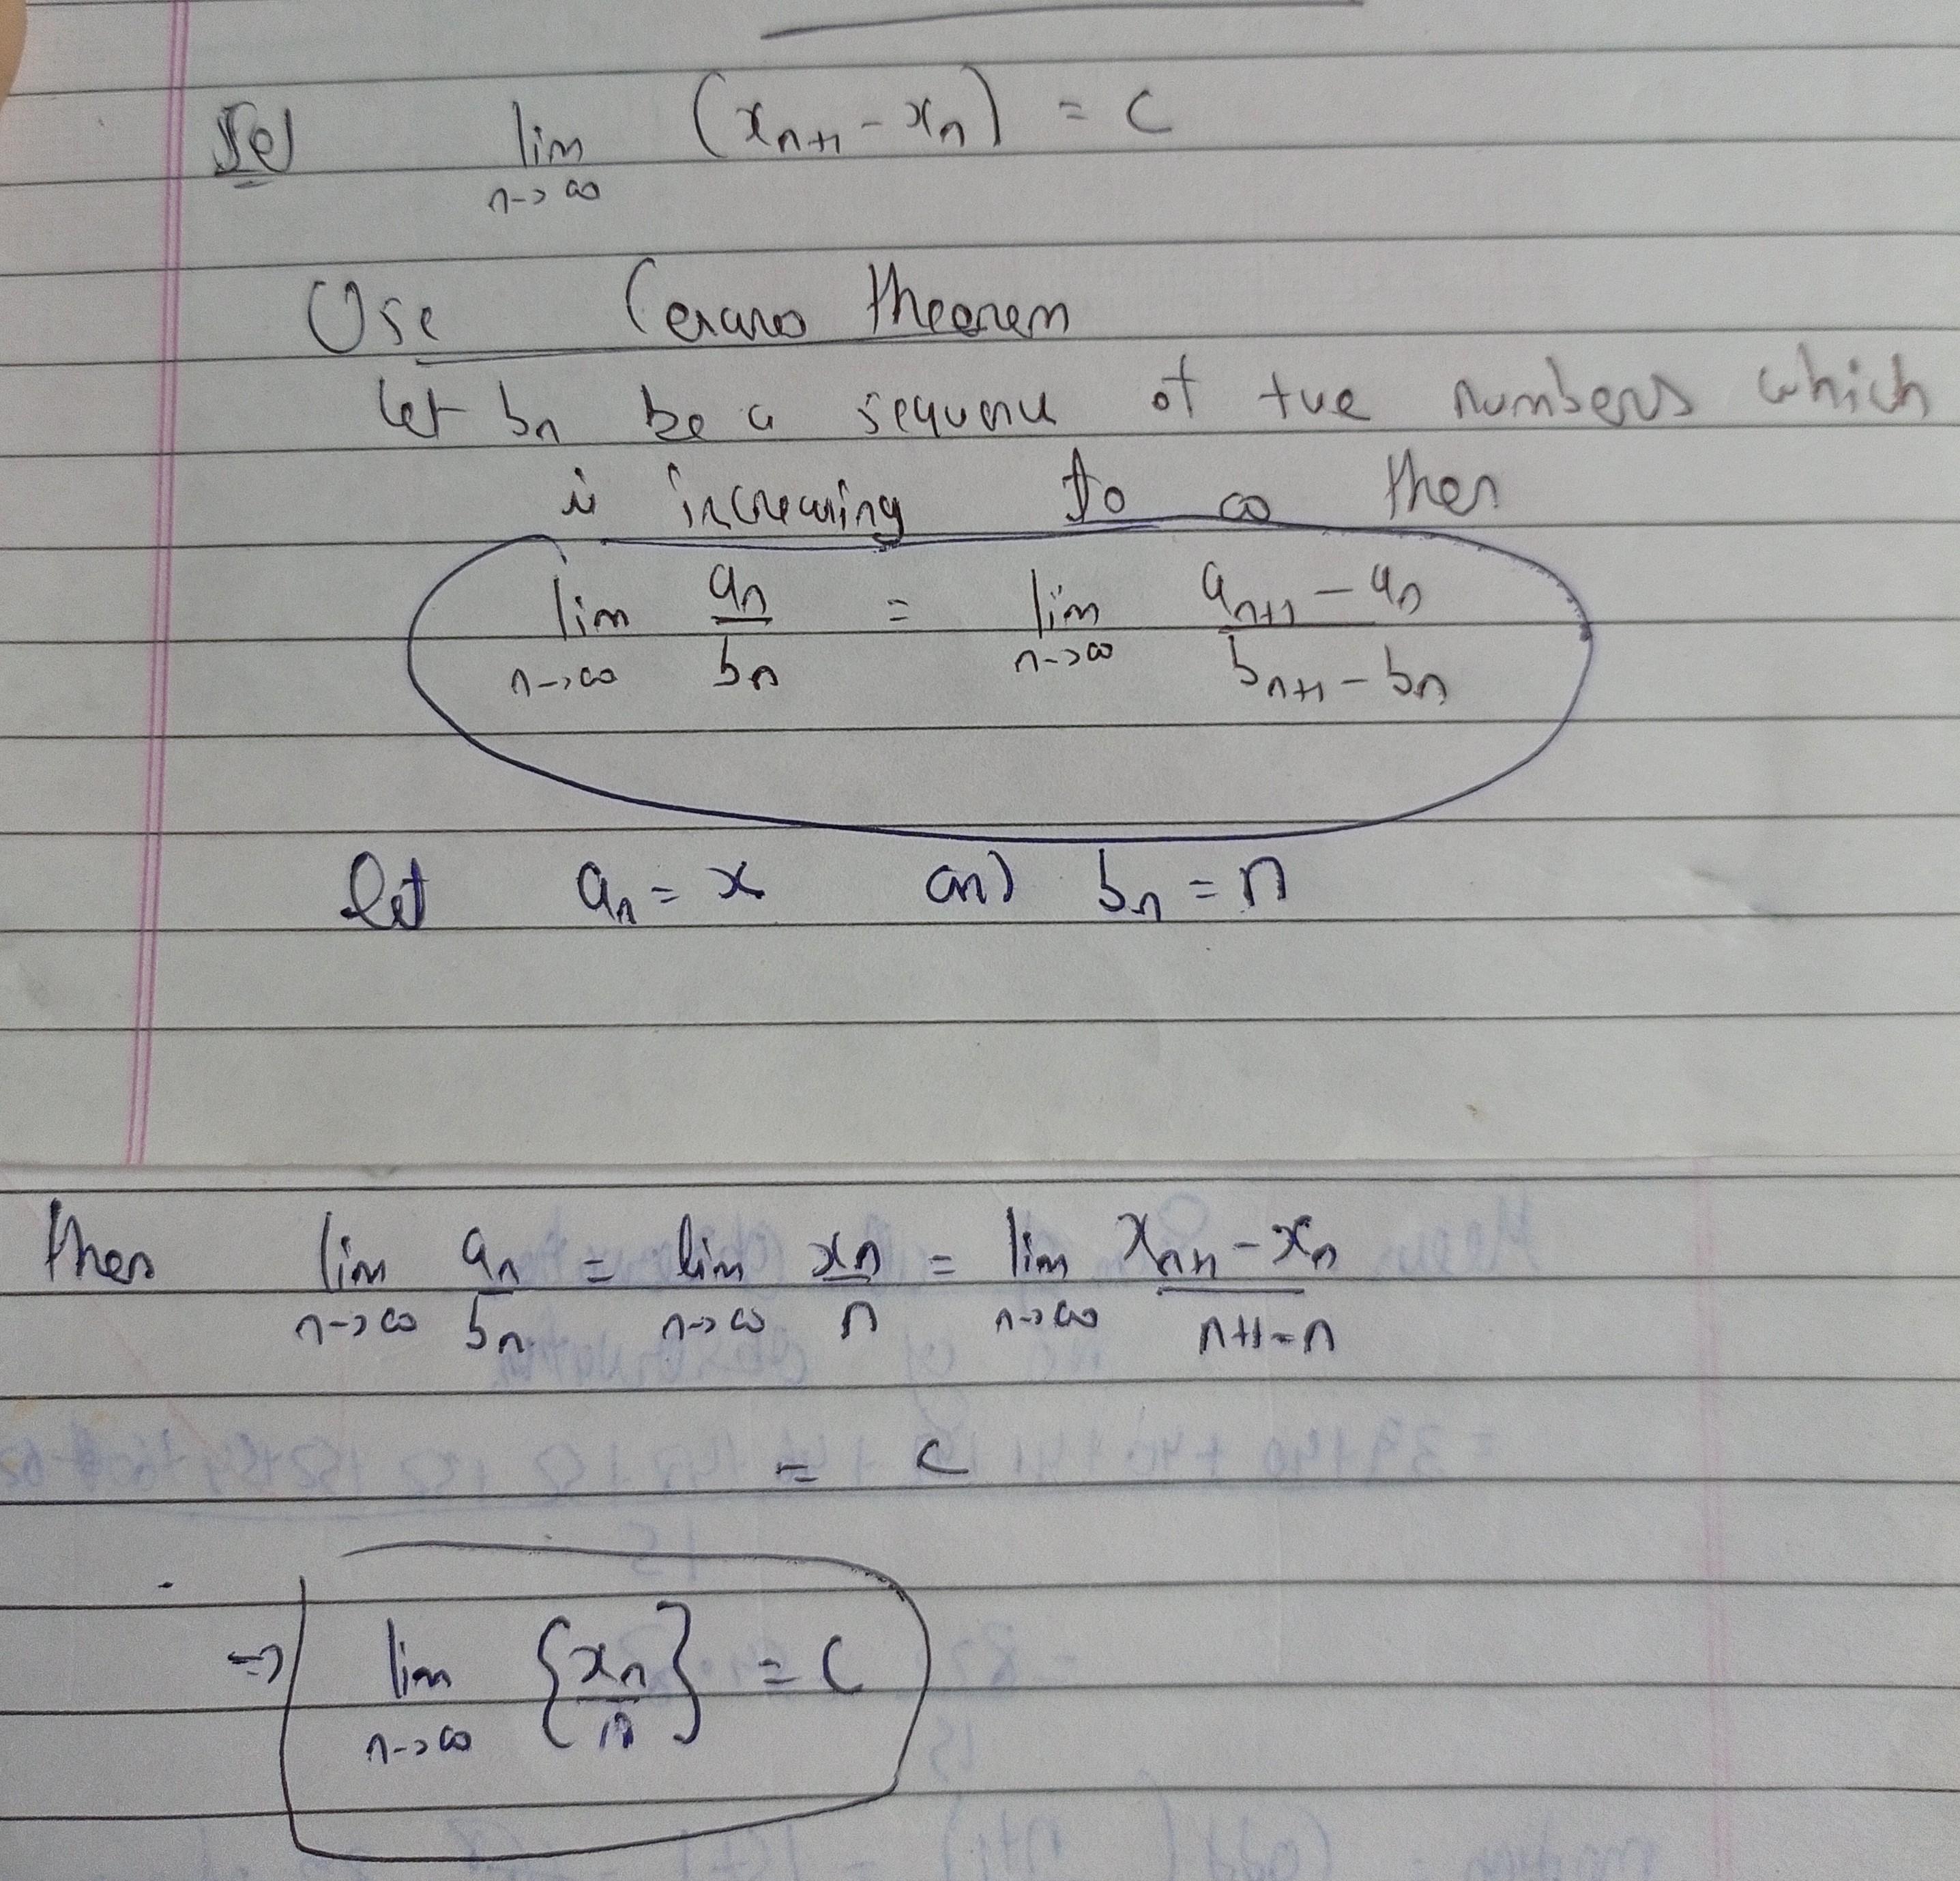 Sol lim n->∞ (xn+1 - xn) = c
Use Cesaro theorem
let bn be a sequence of +ve numbers which
is increasing to ∞ then
lim n->∞ an/bn = lim n->∞ (an+1 - an)/(bn+1 - bn)
let an = x and bn = n
then lim n->∞ an/bn = lim n->∞ xn/n = lim n->∞ (xn+1 - xn)/(n+1-n)
= c
=> lim n->∞ {xn/n} = c